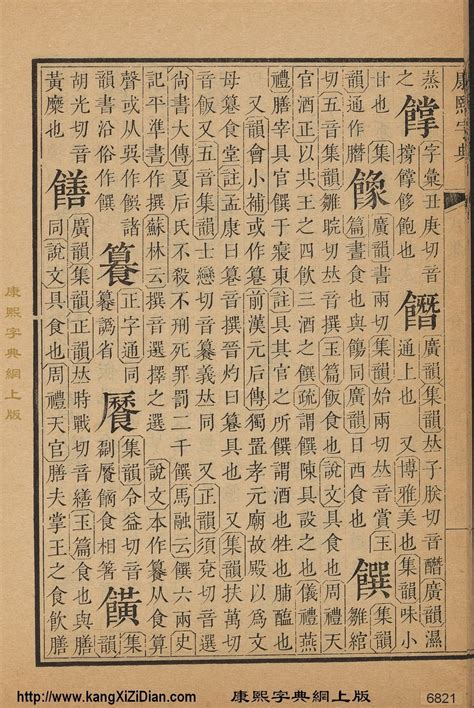 康熙字典
蒸饓字彙丑庚切音䭙廣韻集韻𠀤子朕切音醋廣韻濕
之撐饓哆飽也通上也 又博雅美也集韻味小
甘也 集韻書兩切集韻始兩切音賞玉饌雛綰
韻通作篇晝食也與餳同廣韻日西食也
切五音集韻雛晥切𠀤音撰玉篇飯食也說文具食也周禮天
官酒正以共王之四飲三酒之饌疏謂饌陳具設之也儀禮燕
禮膳宰具官饌于寢東註具其官之所饌謂酒也牲也脯醢也
又韻會小補或作籑前漢元后傳獨置孝元廟故殿以爲文
母篹食堂註孟康曰篹音撰晉灼曰篹具也 又集韻扶萬切
音飯又五音集韻士戀切音籑義𠀤同 又正韻須兗切音選
尙書大傳夏后氏不殺不刑死罪罰二千饌馬融云饌六兩史
記平準書作撰蘇林云撰音選擇之選 說文本作籑从食算
聲或从巽作饌諸正字通同集韻令益切音
韻書沿俗作饌籑譌省食相箸
胡光切音饍廣韻集韻正韻𠀤時戰切音繕玉篇食也
黃糜也同說文具食也周禮天官膳夫掌王之食飮膳
康熙字典網上版
http://www.kangXiZiDian.com
康熙字典網上版
6821